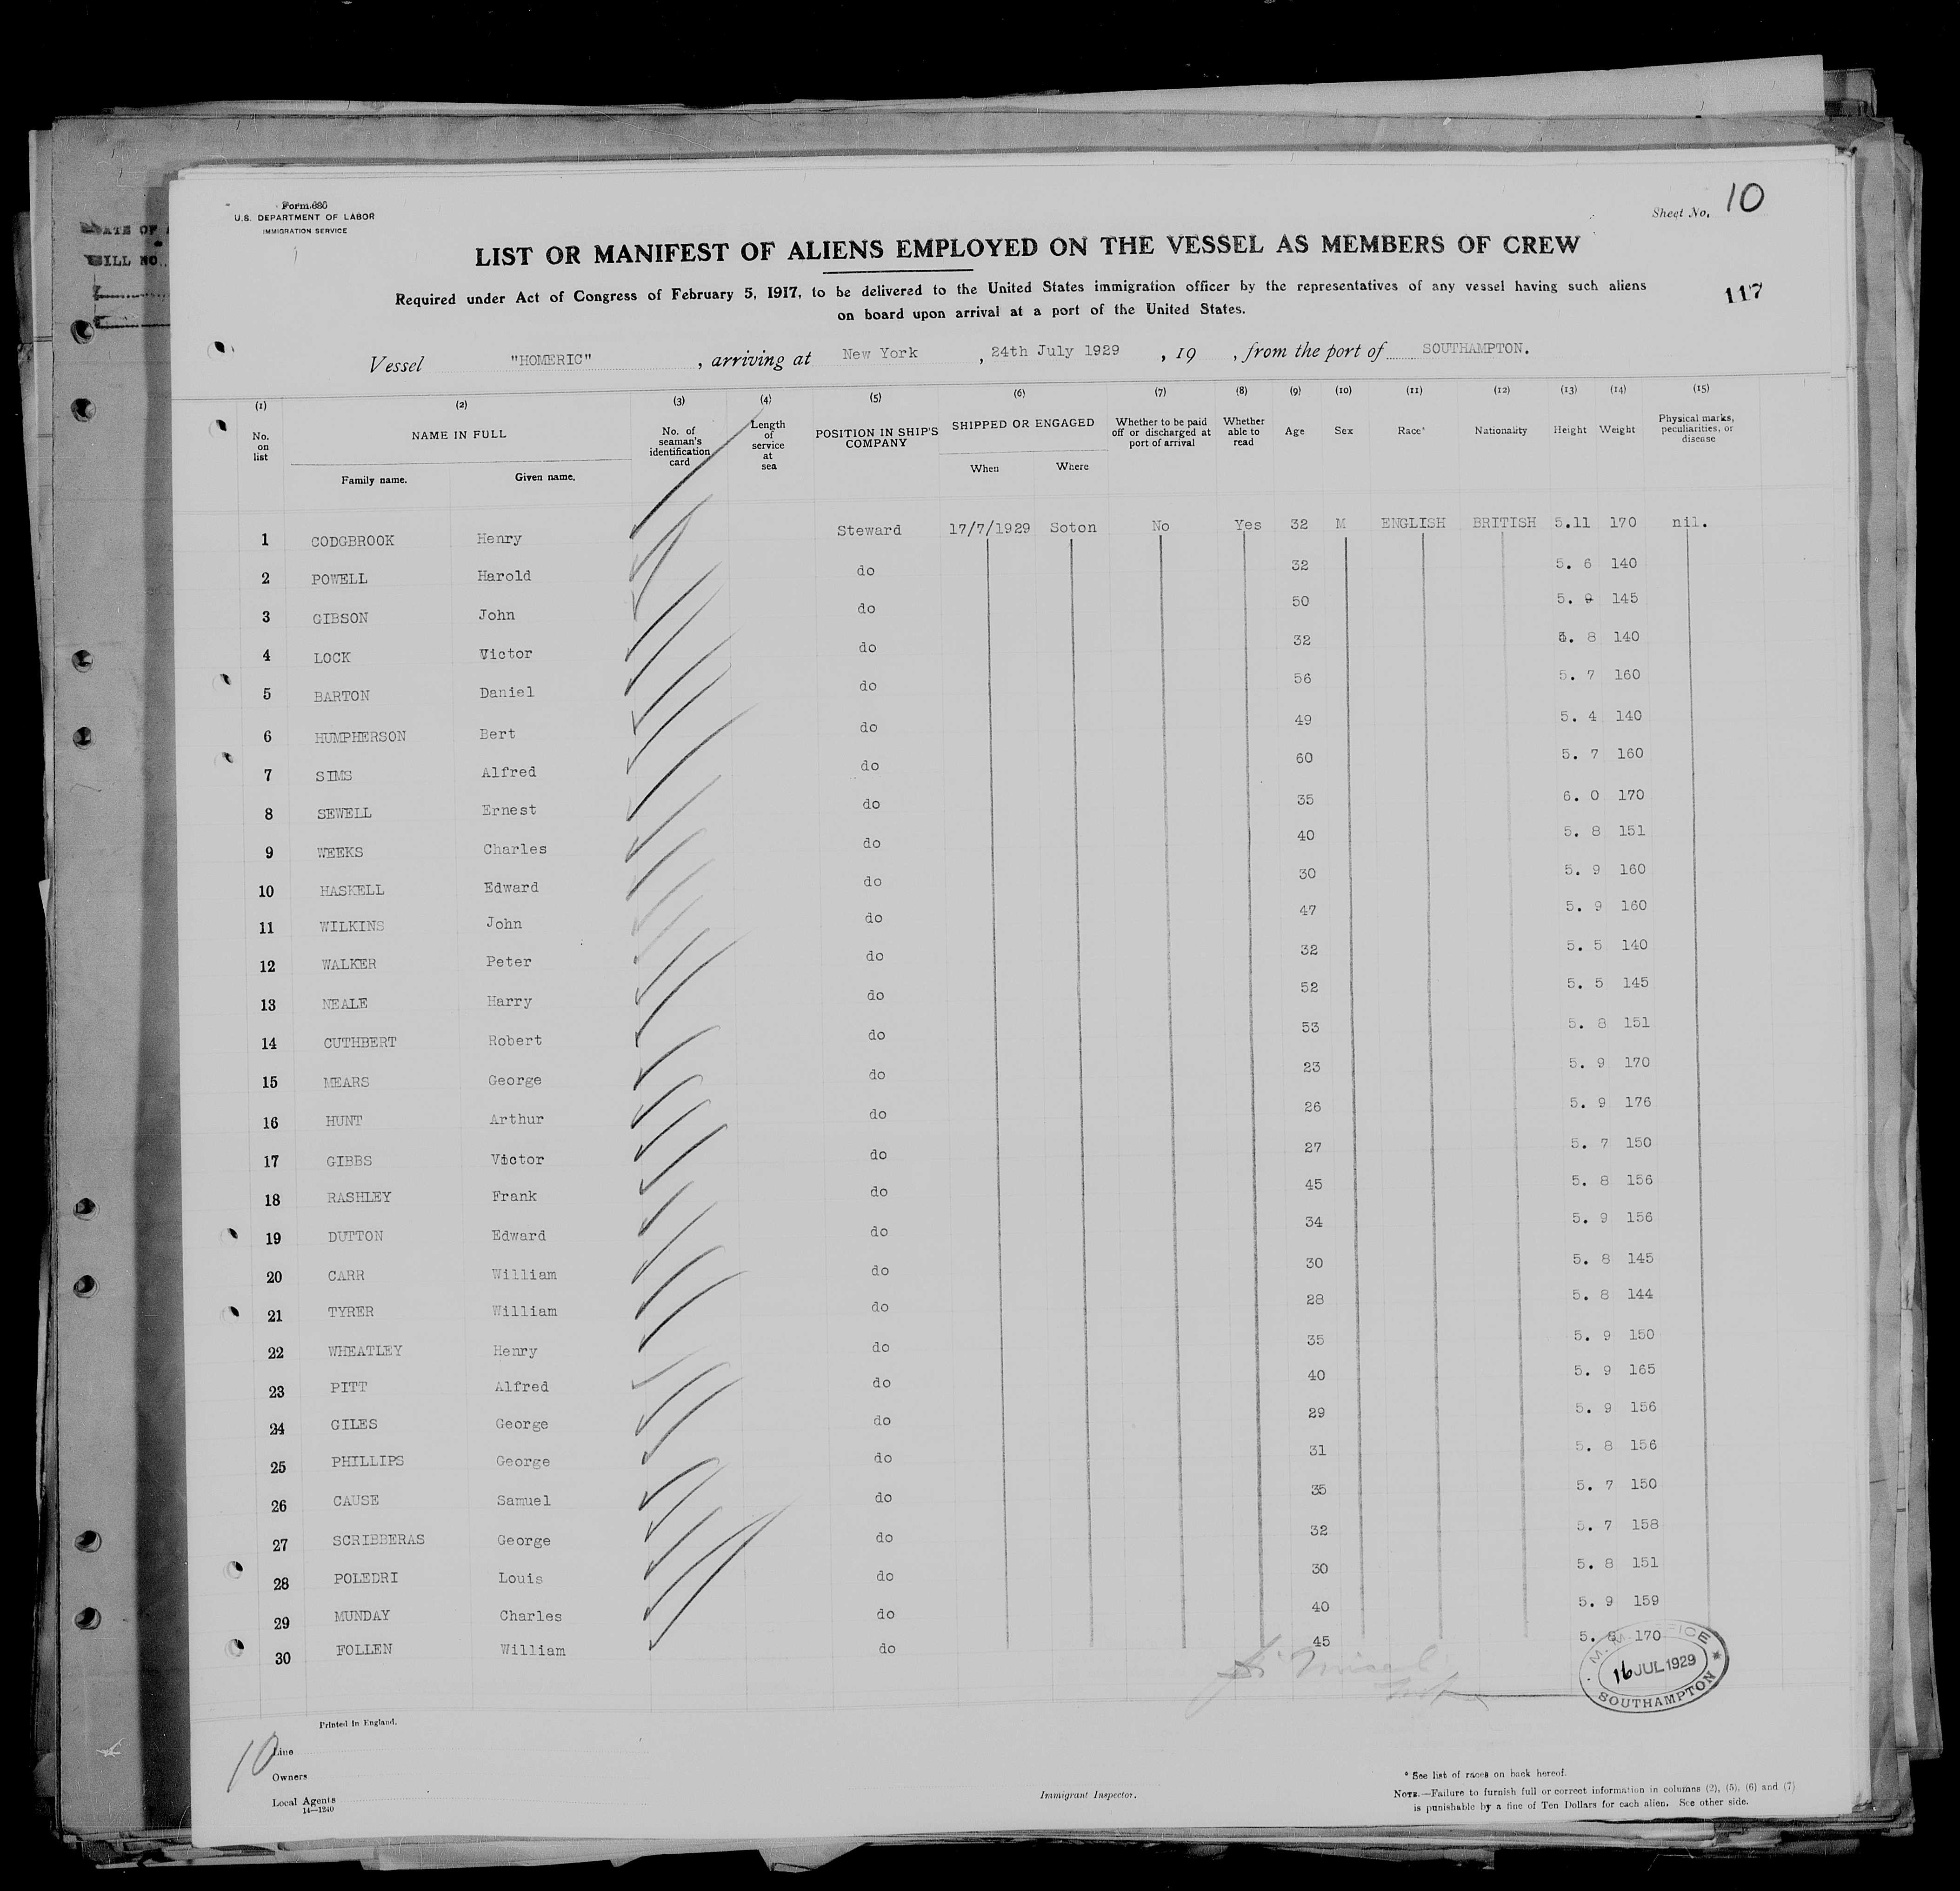 Form 680
U.S. DEPARTMENT OF LABOR
IMMIGRATION SERVICE
Sheet No. 10
LIST OR MANIFEST OF ALIENS EMPLOYED ON THE VESSEL AS MEMBERS OF CREW
Required under Act of Congress of February 5, 1917, to be delivered to the United States immigration officer by the representatives of any vessel having such aliens
on board upon arrival at a port of the United States.
117
Vessel "HOMERIC" , arriving at New York , 24th July 1929 , 19 , from the port of SOUTHAMPTON.
(1) (2) (3) (4) (5) (6) (7) (8) (9) (10) (11) (12) (13) (14) (15)
No. on list NAME IN FULL Family name. Given name. No. of seaman's identification card Length of service at sea POSITION IN SHIP'S COMPANY SHIPPED OR ENGAGED When Where Whether to be paid off or discharged at port of arrival Whether able to read Age Sex Race* Nationality Height Weight Physical marks, peculiarities, or disease
1 CODGBROOK Henry Steward 17/7/1929 Soton No Yes 32 M ENGLISH BRITISH 5.11 170 nil.
2 POWELL Harold do 32 5. 6 140
3 GIBSON John do 50 5. 9 145
4 LOCK Victor do 32 5. 8 140
5 BARTON Daniel do 56 5. 7 160
6 HUMPHERSON Bert do 49 5. 4 140
7 SIMS Alfred do 60 5. 7 160
8 SEWELL Ernest do 35 6. 0 170
9 WEEKS Charles do 40 5. 8 151
10 HASKELL Edward do 30 5. 9 160
11 WILKINS John do 47 5. 9 160
12 WALKER Peter do 32 5. 5 140
13 NEALE Harry do 52 5. 5 145
14 CUTHBERT Robert do 53 5. 8 151
15 MEARS George do 23 5. 9 170
16 HUNT Arthur do 26 5. 9 176
17 GIBBS Victor do 27 5. 7 150
18 RASHLEY Frank do 45 5. 8 156
19 DUTTON Edward do 34 5. 9 156
20 CARR William do 30 5. 8 145
21 TYRER William do 28 5. 8 144
22 WHEATLEY Henry do 35 5. 9 150
23 PITT Alfred do 40 5. 9 165
24 GILES George do 29 5. 9 156
25 PHILLIPS George do 31 5. 8 156
26 CAUSE Samuel do 35 5. 7 150
27 SCRIBBERAS George do 32 5. 7 158
28 POLEDRI Louis do 30 5. 8 151
29 MUNDAY Charles do 40 5. 9 159
30 FOLLEN William do 45 5. 170
16 JUL 1929
SOUTHAMPTON
Printed in England.
10
Line
Owners
Local Agents
14—1240
Immigrant Inspector.
* See list of races on back hereof.
NOTE.—Failure to furnish full or correct information in columns (2), (5), (6) and (7)
is punishable by a fine of Ten Dollars for each alien. See other side.